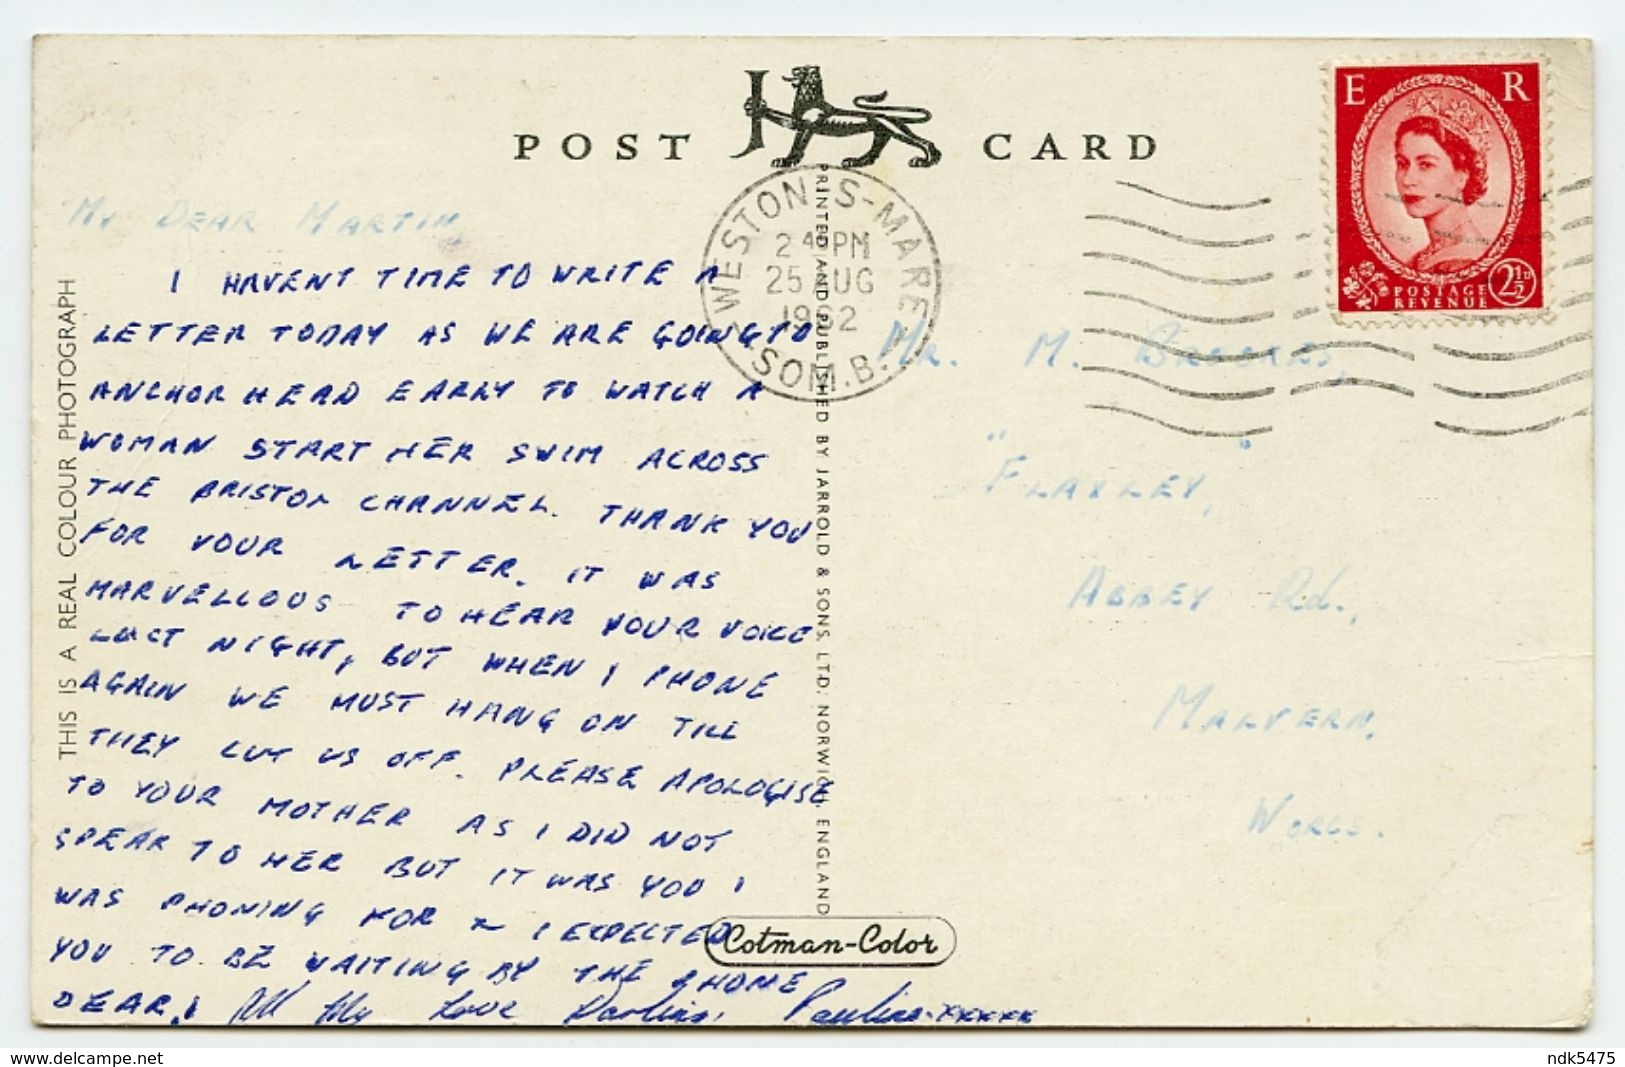 POST CARD
WESTON-S-MARE
2 45 PM
25 AUG
1962
SOM.B.
E R
POSTAGE
REVENUE
2½D
THIS IS A REAL COLOUR PHOTOGRAPH
PRINTED AND PUBLISHED BY JARROLD & SONS. LTD: NORWICH, ENGLAND
MY DEAR MARTIN,
I HAVENT TIME TO WRITE A
LETTER TODAY AS WE ARE GOING TO
ANCHOR HEAD EARLY TO WATCH A
WOMAN START HER SWIM ACROSS
THE BRISTOL CHANNEL. THANK YOU
FOR YOUR LETTER. IT WAS
MARVELLOUS TO HEAR YOUR VOICE
LAST NIGHT, BUT WHEN I PHONE
AGAIN WE MUST HANG ON TILL
THEY CUT US OFF. PLEASE APOLOGISE
TO YOUR MOTHER AS I DID NOT
SPEAK TO HER BUT IT WAS YOU I
WAS PHONING FOR & I EXPECTED
YOU TO BE WAITING BY THE PHONE
DEAR! All My Love Darling, Pauline. xxxxx
Mr. M. BROOKES,
"FLAXLEY,"
ABBEY Rd.,
MALVERN,
WORCS.
Cotman-Color
ndk5475